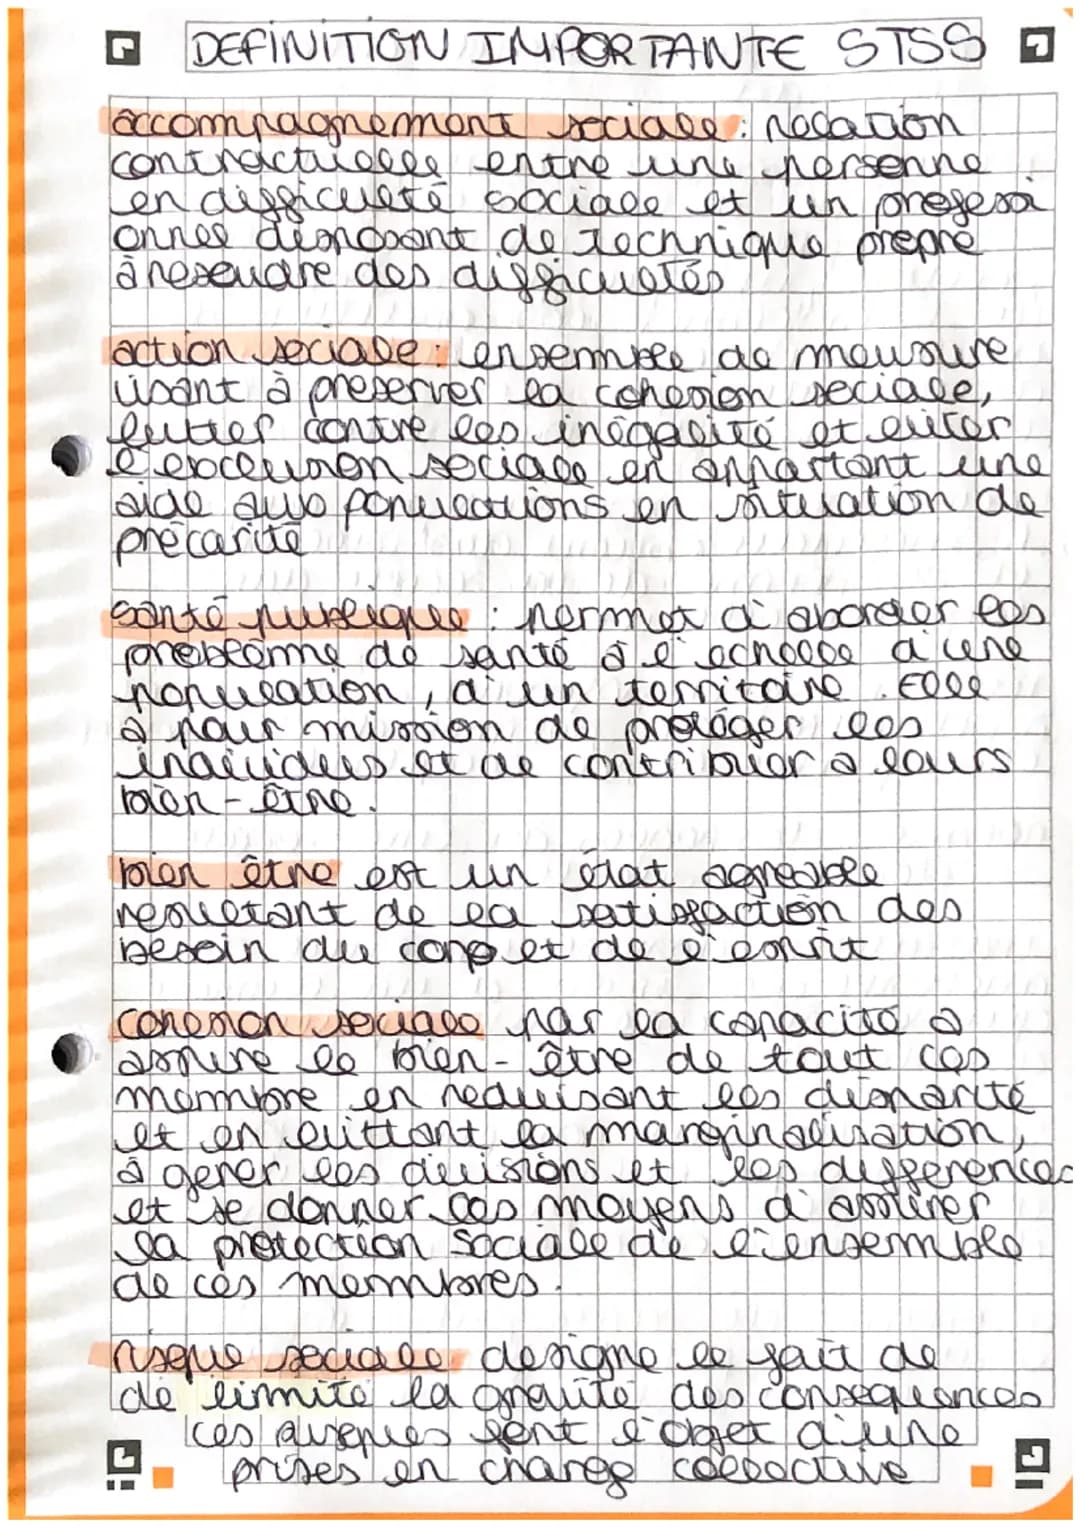 DEFINITION IMPORTANTE STSS
accompagnement sociale : relation
contractuelle entre une personne
en difficulté sociale et un professi
onnel disposant de technique propre
à resoudre des difficultés
action sociale : ensemble de mesure
visant à preserver la cohesion sociale,
lutter contre les inégalité et eviter
l'exclusion sociale en apportant une
aide aux populations en situation de
précarité
santé publique : permet d'aborder les
problème de santé à l'echelle d'une
population, d'un territoire. Elle
à pour mission de protéger les
individus et de contribuer a leurs
bien-être.
bien être est un état agreable
resultant de la satisfaction des
besoin du corp et de l'esprit
cohesion sociale par la capacité a
assure le bien-être de tout ces
membre en reduisant les disparité
et en evittant la marginalisation,
à gerer les divisions et les differences
et se donner les moyens d'assurer
la protection sociale de l'ensemble
de ces membres.
risque sociale designe le fait de
de limité la gravité des consequences
ces risques sont l'objet d'une
prises en charge collective